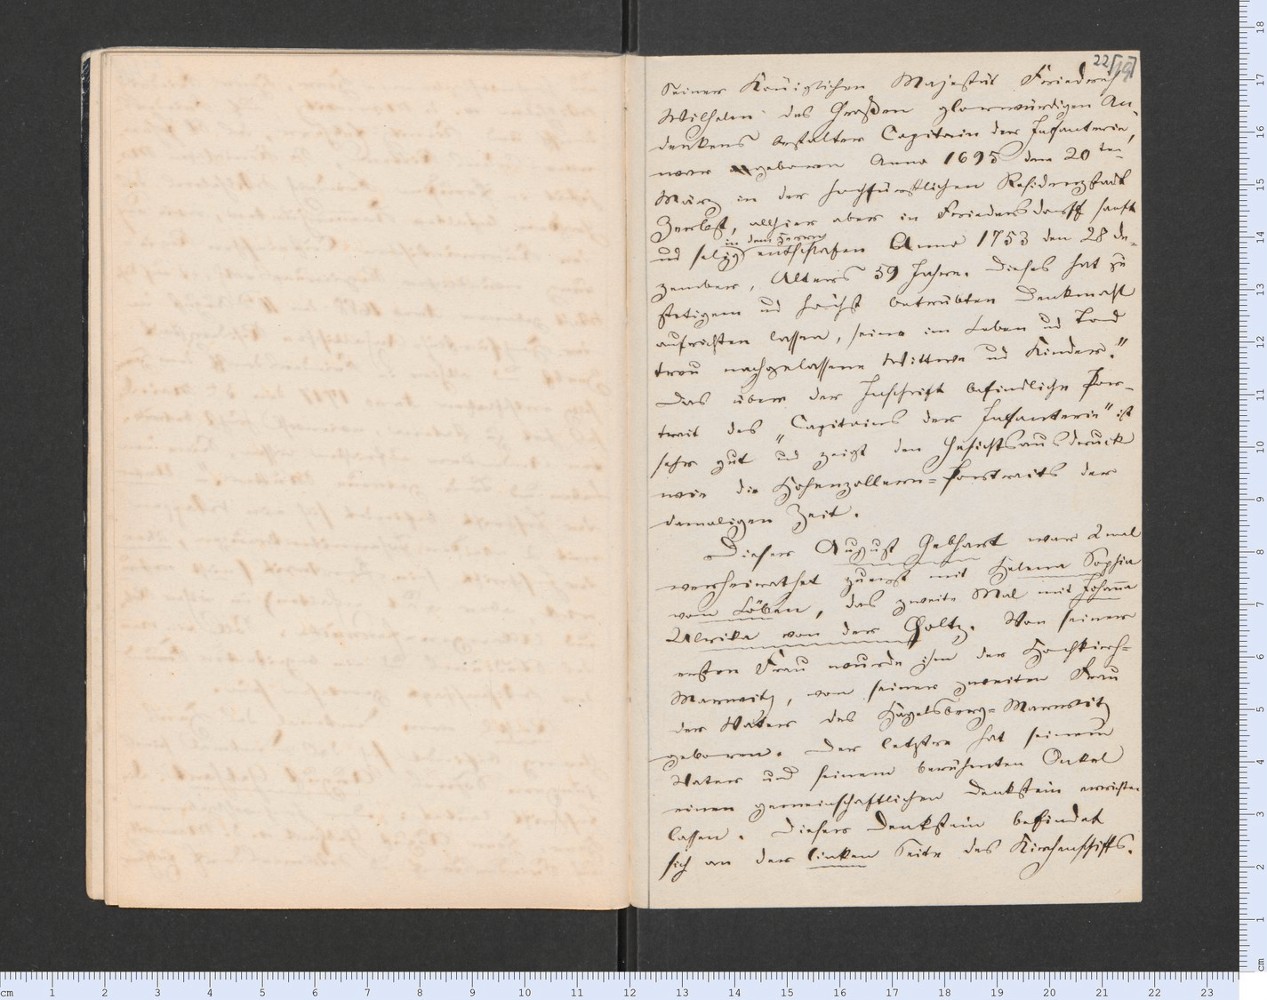 22[19]
Seiner Königlichen Majestät Friedrich
Wilhelm des Großen glorwürdigen An-
denkens bestalter Capitain der Infanterie,
war geboren Anno 1695 den 20 ten
März in der hochfürstlichen Residenzstadt
Zerbst, allhier aber in Friedersdorff sanft
und selig in dem Herrn entschlafen Anno 1753 den 28 De-
zember, Alters 59 Jahre. Dieses hat zu
stetigem und höchst betrübten Denkmahl
aufrichten lassen, seine im Leben und Tod
treu nachgelassene Wittwe und Kinder."
Das über der Inschrift befindliche Por-
trait des "Capitains der Infanterie" ist
sehr gut und zeigt den Gesichtsausdruck
wie die Hohenzollern-Portraits der
damaligen Zeit.
Dieser August Gebhart war 2 mal
verheirathet zuerst mit Helena Sophia
von Löben, das zweite Mal mit Johanna
Ulrike von der Goltz. Von seiner
ersten Frau wurde ihm der Hochkirch-
Marwitz, von seiner zweiten Frau
der Vater des Hagelsberg-Marwitz
geboren. Der letztre hat seinem
Vater und seinem berühmten Onkel
einen gemeinschaftlichen Denkstein errichten
lassen. Dieser Denkstein befindet
sich an der linken Seite des Kirchenschiffs.